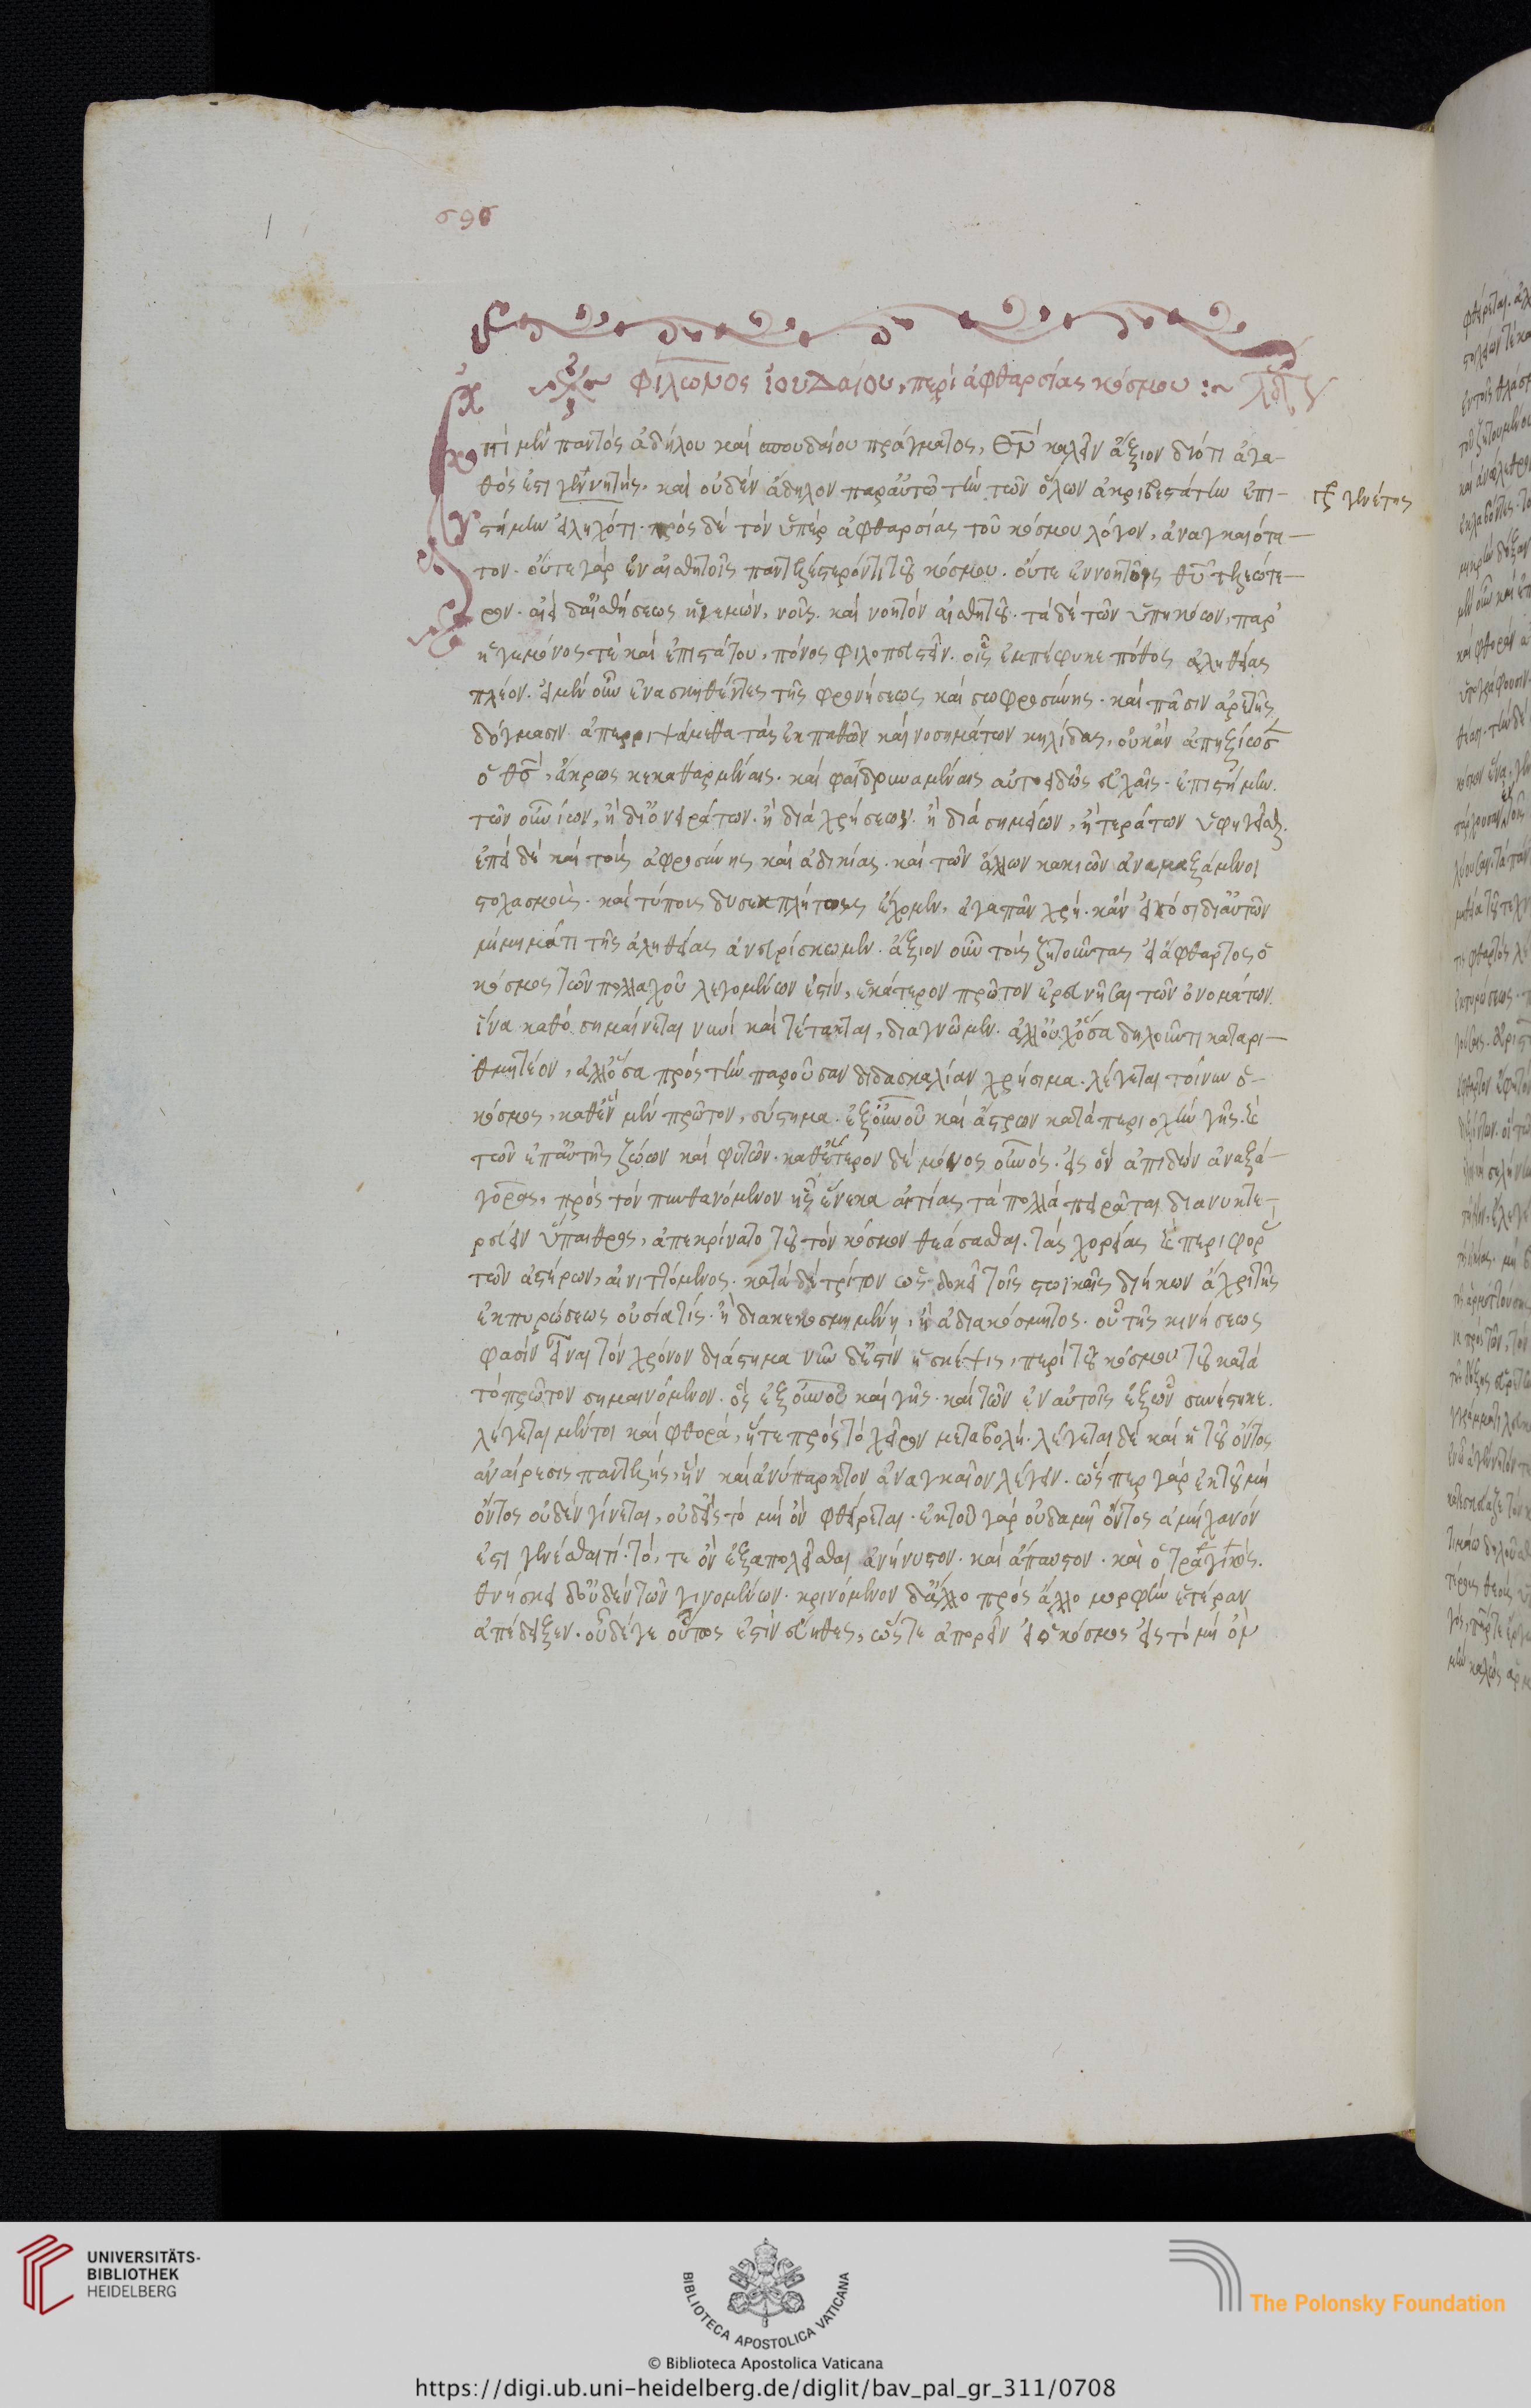 696
φίλωνος ἰουδαίου, περὶ ἀφθαρσίας κόσμου :~
πὶ μὲν παντὸς ἀδήλου καὶ σπουδαίου πράγματος, θν καλεῖν ἄξιον διότι ἀγα-
θός ἐστι γεννητής, καὶ οὐδὲν ἄδηλον παρ αὐτῶ τὴν τῶν ὅλων ἀκριβεστάτην ἐπι-
γενέτης
στήμην εἰληχότι. πρὸς δὲ τὸν ὑπὲρ ἀφθαρσίας τοῦ κόσμου λόγον, ἀναγκαιότα-
τον. οὔτε γὰρ ἐν αἰσθητοῖς παντελέστερόν τι τοῦ κόσμου. οὔτε ἐν νοητοῖς θυ τελεώτε-
ρον. αἰεὶ δ αἰσθήσεως ἡγεμὼν, νοῦς. καὶ νοητὸν αἰσθητοῦ. τὰ δὲ τῶν ὑπηκόων, παρ
ἡγεμόνος τὲ καὶ ἐπιστάτου, πόνος φιλοπευστεῖν. οἷς ἐμπέφυκε πόθος ἀληθείας
πλέον. εἰ μὲν οὖν ἐνασκηθέντες τῆς φρονήσεως καὶ σωφροσύνης. καὶ πᾶσιν ἀρετῆς
δόγμασιν ἀπερριψάμεθα τὰς ἐκ παθῶν καὶ νοσημάτων κηλίδας, οὐκ ἂν ἀπηξίωσ
ὁ θσ, ἄκρως κεκαθαρμέναις. καὶ φαιδρυναμέναις αὐτοειδῶς ψυχαῖς. ἐπιστήμην.
τῶν οὐνίων, ἢ δι ὀνειράτων. ἢ διὰ χρήσεων. ἢ διὰ σημείων, ἢ τεράτων ὑφηγεῖσθαι.
ἐπεὶ δὲ καὶ τοὺς ἀφροσύνης καὶ ἀδικίας. καὶ τῶν ἄλλων κακιῶν ἀναμαξάμενοι
στοχασμοὺς. καὶ τύπους δυσεκπλύτους ἔχομεν, ἀγαπᾶν χρή. κἂν εἰκόσι δι αὐτῶν
μιμήματι τῆς ἀληθείας ἀνευρίσκωμεν. ἄξιον οὖν τοὺς ζητοῦντας εἰ ἄφθαρτος ὁ
κόσμος τῶν πολλαχοῦ λεγομένων ἐστὶν, ἑκάτερον πρῶτον ἐρευνῆσαι τῶν ὀνομάτων.
ἵνα καθὸ σημαίνεται νυνὶ καὶ τέτακται, διαγνῶμεν. ἀλλ οὐχ ὅσα δηλοῦντι καταρι-
θμητέον, ἀλλ ὅσα πρὸς τὴν παροῦσαν διδασκαλίαν χρήσιμα. λέγεται τοίνυν ὁ-
κόσμος, καθ ἓν μὲν πρῶτον, σύστημα. ἐξ οὐνοῦ καὶ ἄστρων κατὰ περιοχὴν γῆς. καὶ
τῶν ἐπ αὐτῆς ζώων καὶ φυτῶν. καθ ἕτερον δὲ μόνος οὐνός. εἰς ὃν ἀπιδὼν ἀναξα-
γόρας, πρὸς τὸν πυνθανόμενον ἧς ἕνεκα αἰτίας τὰ πολλὰ πειρᾶται διανυκτε-
ρεύειν ὕπαιθρος, ἀπεκρίνατο τοῦ τὸν κόσμον θεάσασθαι. τὰς χορείας καὶ περιφορ
τῶν ἀστέρων, αἰνιττόμενος. κατὰ δὲ τρίτον ὡς δοκεῖ τοῖς στωϊκοῖς διήκων ἄχρι τῆς
ἐκπυρώσεως οὐσία τίς. ἢ διακεκοσμημένη, ἢ ἀδιακόσμητος. οὗ τῆς κινήσεως
φασὶν εἶναι τὸν χρόνον διάστημα νῦν δ ἐστὶν ἡ σκέψις, περὶ τοῦ κόσμου τοῦ κατὰ
τὸ πρῶτον σημαινόμενον. ὃς ἐξ οὐνοῦ καὶ γῆς. καὶ τῶν ἐν αὐτοῖς ἐξ ὧν συνέστηκε.
λέγεται μέντοι καὶ φθορά, ἥ τε πρὸς τὸ χεῖρον μεταβολή. λέγεται δὲ καὶ ἡ τοῦ ὄντος
ἀναίρεσις παντελής, ἣν καὶ ἀνύπαρκτον ἀναγκαῖον λέγειν. ὥσπερ γὰρ ἐκ τοῦ μὴ
ὄντος οὐδὲν γίνεται, οὐδ εἰς τὸ μὴ ὂν φθείρεται. ἐκ τοῦ γὰρ οὐδαμῆ ὄντος ἀμήχανόν
ἐστι γενέσθαι τί. τό, τε ὂν ἐξαπολεῖσθαι ἀνήνυστον. καὶ ἄπαυστον. καὶ ὁ τραγικός.
θνήσκει δ οὐδὲν τῶν γινομένων. κρινόμενον δ ἄλλο πρὸς ἄλλο μορφὴν ἑτέραν
ἀπέδειξεν. οὐδέ γε οὕτως ἐστὶν εὔηθες, ὥστε ἀπορεῖν εἰ ὁ κόσμος εἰς τὸ μὴ ὂν
UNIVERSITÄTS-
BIBLIOTHEK
HEIDELBERG
BIBLIOTECA APOSTOLICA VATICANA
The Polonsky Foundation
© Biblioteca Apostolica Vaticana
https://digi.ub.uni-heidelberg.de/diglit/bav_pal_gr_311/0708